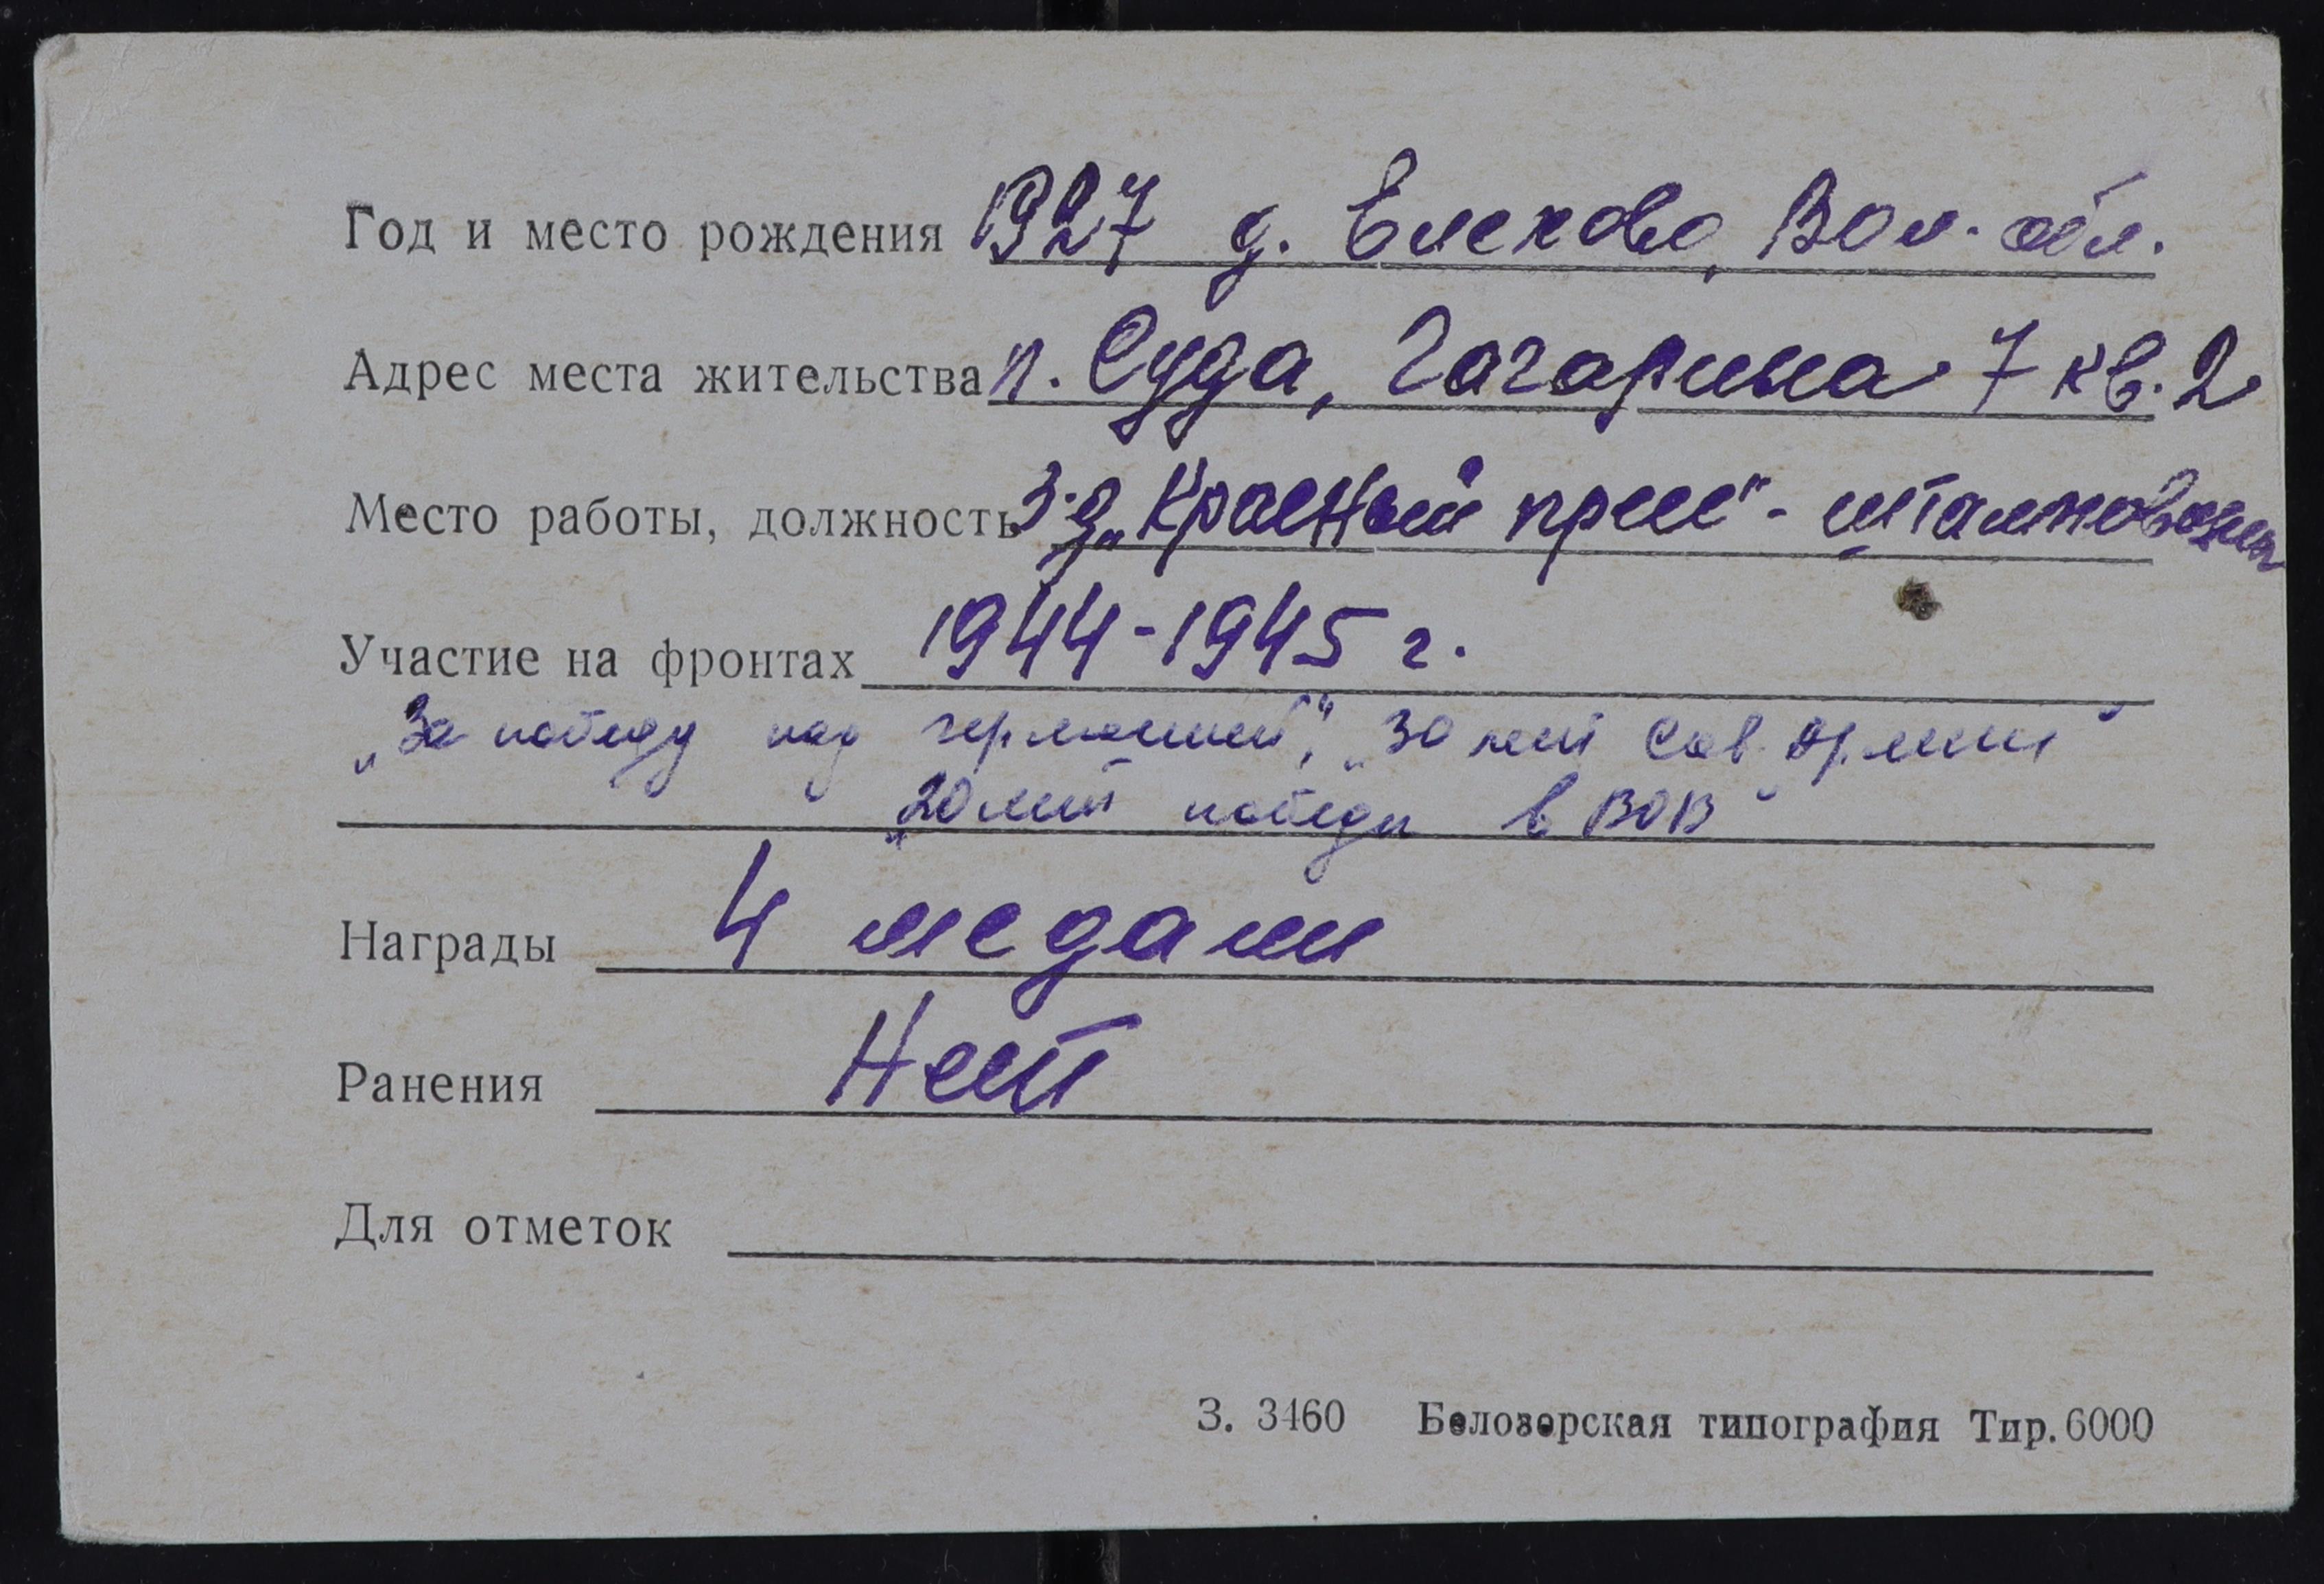 Год и место рождения 1927 д. Елехово, Вол. обл.
Адрес места жительства п. Суда, Гагарина 7 кв. 2
Место работы, должность з-д „Красный пресс" - штамповщица
Участие на фронтах 1944-1945 г.
„За победу над германией", „30 лет Сов. Армии"
„20 лет победы в ВОВ"
Награды 4 медали
Ранения Нет
Для отметок
З. 3460 Белозерская типография Тир. 6000